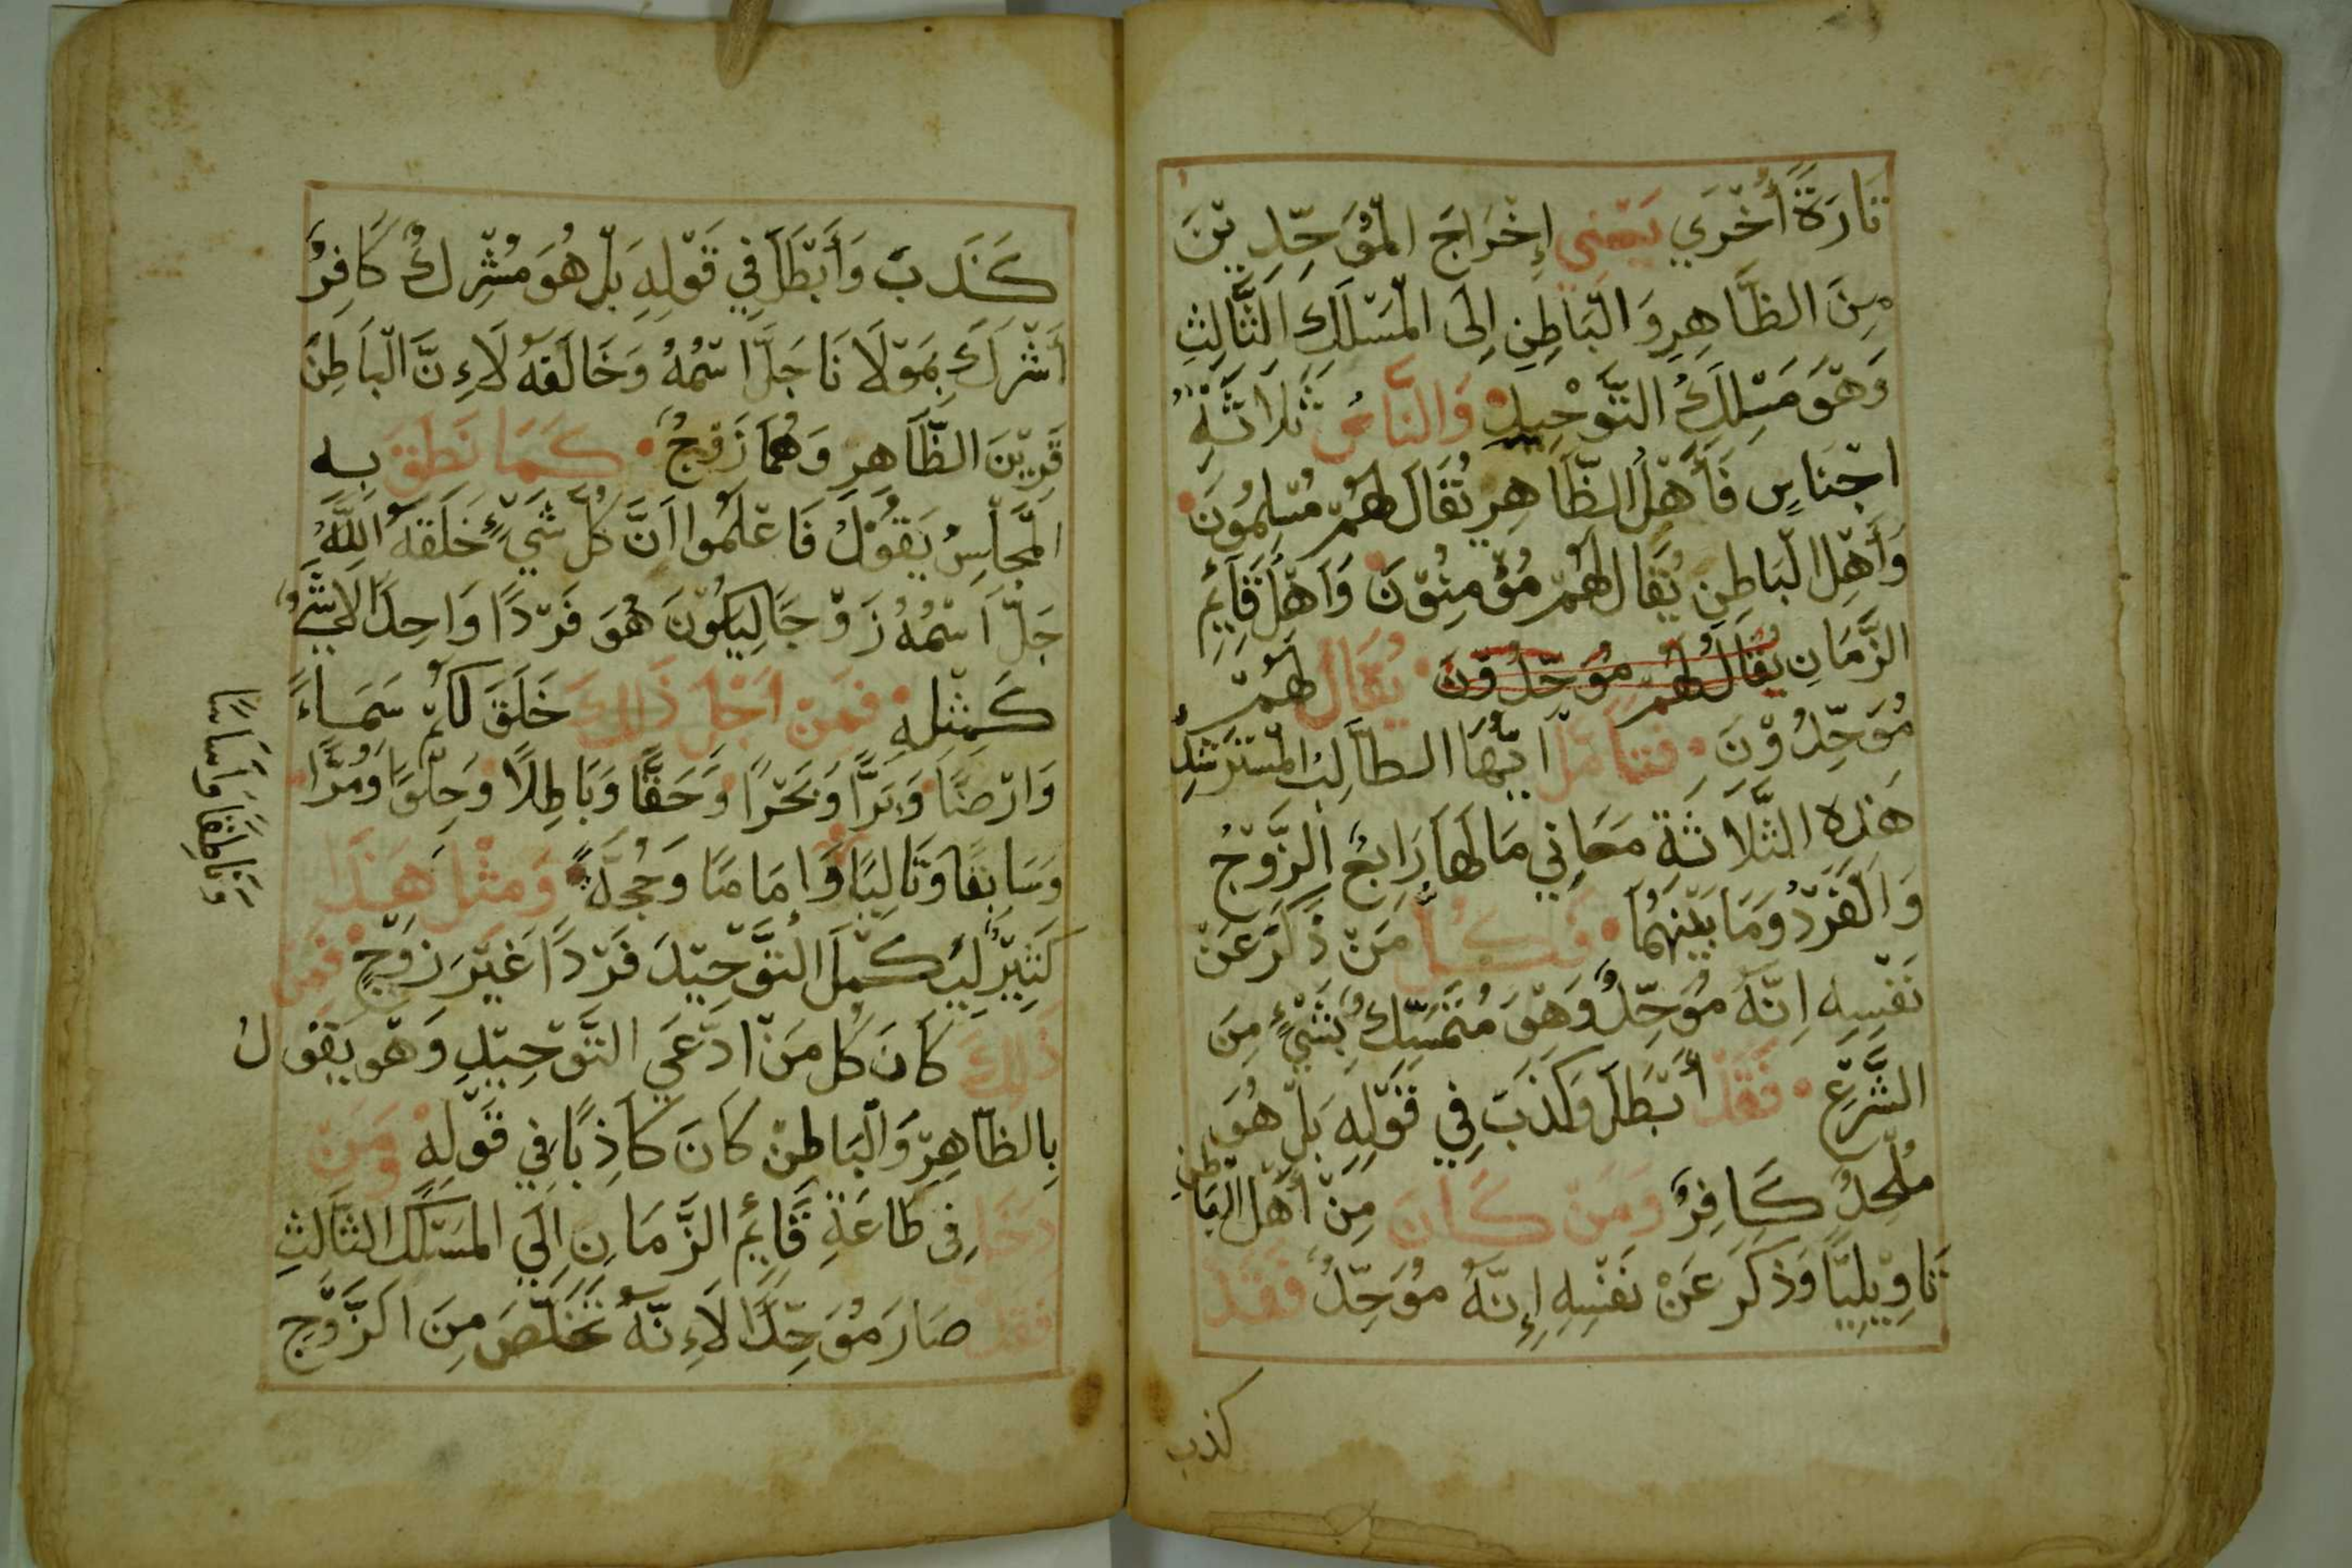 تَارَةً أُخْرَي يَعْنِي إِخْرَاجَ الْمُوَحِّدِيْنَ
مِنَ الظَّاهِرِ وَالْبَاطِنِ اِلَى الْمَسْلَكِ الثَّالِثِ
وَهْوَ مَسْلَكُ التَّوْحِيدِ وَالنَّاسُ ثَلَاثَةُ
اجْنَاسٍ فَأَهْلُ الظَّاهِرِ يُقَالَ لَهُمْ مُسْلِمُونَ
وَأَهْلِ الْبَاطِنِ يُقَالُ لَهُمْ مُؤْمِنُوْنَ وَاَهْلُ قَائِمِ
الزَّمَانِ يُقَالُ لَهُمْ مُوَحِّدُوْنَ يُقَالُ لَهُمْ
مُوَحِّدُوْنَ فَتَأَمَّلْ اَيُّهَا الطَّالِبُ الْمُسْتَرْشِدُ
هَذِهِ الثَّلَاثَةِ مَعَانِي مَا لَهَا رَابِعُ الزَّوْجُ
وَالْفَرْدُ وَمَا بَيْنَهُمَا فَكُلُّ مَنْ ذَكَرَ عَنْ
نَفْسِهِ اِنَّهُ مُوَحِّدٌ وَهْوَ مُتَمَسِّكٌ بِشَيْءٍ مِنَ
الشَّرْعِ فَقَدْ أَبْطَلَ وَكَذَبَ فِي قَوْلِهِ بَلْ هُوَ
مُلْحِدُ كَافِرٌ وَمَنْ كَانَ مِنْ أَهْلِ الْبَاطِنِ
تَاوِيْلِيًّا وَذَكَرَ عَنْ نَفْسِهِ إِنَّهُ مُوَحِّدُ فَقَدْ
كذب
كَذَبَ وَأَبْطَلَ فِي قَوْلِهِ بَلْ هُوَ مُشْرِكُ كَافِرٌ
أَشْرَكَ بِمَوْلَانَا جَلَّ اسْمُهُ وَخَالَفَهُ لَاءِنَّ الْبَاطِنَ
قَرِيْنَ الظَّاهِرِ وَهُمَا زَوْجُ كَمَا نَطَقَ بِهِ
الْمَجْلِسُ يَقُوْلُ فَاعْلَمُوا اَنَّ كُلَّ شَيْءٍ خَلَقَهُ اللَّهُ
جَلَّ اَسْمُهُ زَوْجَا لِيَكُوْنَ هُوَ فَرْدًا وَاحِدًا لَا شَيْءُ
كَمِثْلِهِ فَمِنْ اَجْلِ ذَلِكَ خَلَقَ لَكُمْ سَمَاءً
وَارْضًا وَبَرًّا وَبَحْرًا وَحَقًّا وَبَاطِلًا وَحِلْوًا وَمُرًّا
وَسَابِقًا وَتَالِيًا وَإِمَامًا وَحُجَّةً وَمِثْلَ هَذَا
وَنَاطِقًا وَأَسَاسًا
كَثِيْرٌ لِيَكْمِلَ التَّوْحِيْدَ فَرْدًا غَيْرَ زَوْجٍ فَمِنْ
ذَلِكَ كَانَ كُلُّ مَنْ ادَّعَي التَّوْحِيْدِ وَهْوَ يَقُوْلُ
بِالظَّاهِرِ وَالْبَاطِنْ كَانَ كَاذِبًا فِي قَوْلِهِ وَمَنْ
دَخَلَ فِى طَاعَةِ قَائِمُ الزَّمَانِ اِلَي الْمَسْلَكِ الثَّالِثِ
فَقَدْ صَارَ مُوَحِّدًا لَاءِنَّهُ تَخَلَّصَ مِنَ الزَّوْجِ